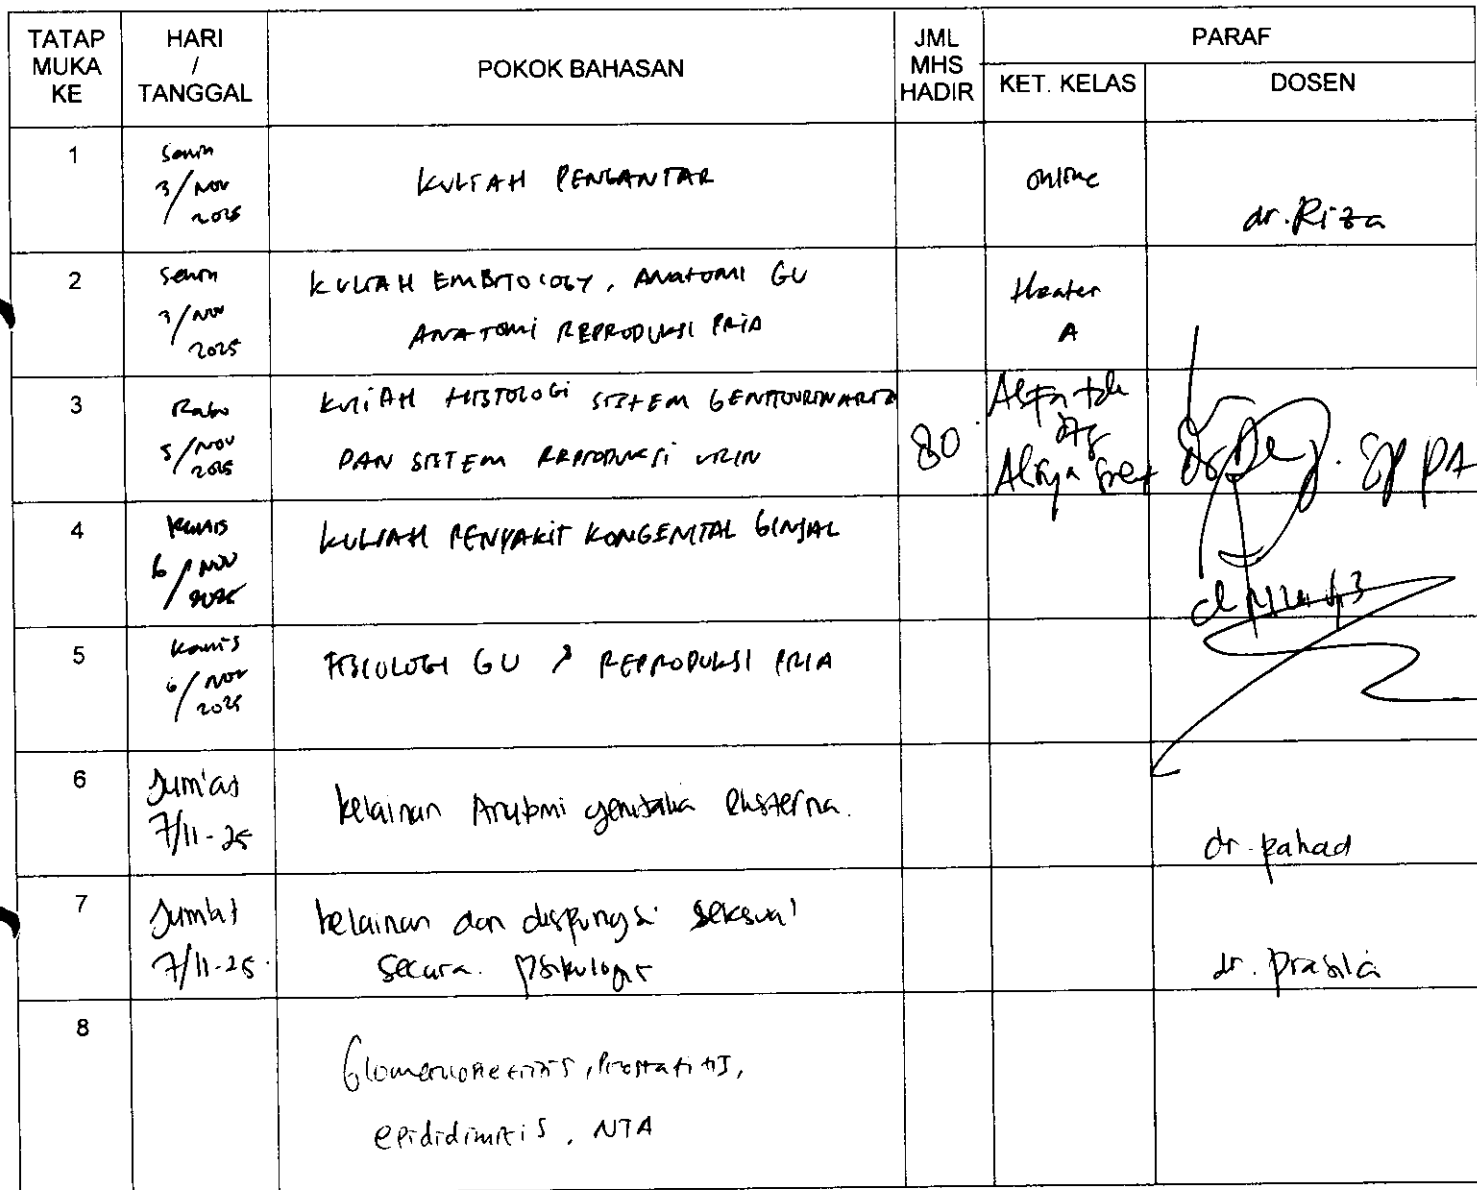 TATAP MUKA KE
HARI / TANGGAL
POKOK BAHASAN
JML MHS HADIR
PARAF
KET. KELAS
DOSEN
1
Senin
3/Nov
2025
KULIAH PENGANTAR
online
dr. Riza
2
Senin
3/Nov
2025
KULIAH EMBRIOLOGY, ANATOMI GU
ANATOMI REPRODUKSI PRIA
theater
A
3
Rabu
5/Nov
2025
KULIAH HISTOLOGI SISTEM GENITOURINARIA
DAN SISTEM REPRODUKSI
80
Sp PA
4
Kamis
6/Nov
2025
KULIAH PENYAKIT KONGENITAL GINJAL
5
Kamis
6/Nov
2025
FISIOLOGI GU & REPRODUKSI PRIA
6
Jum'at
7/11-25
kelainan Anatomi genitalia eksterna.
dr. Pahad
7
Jum'at
7/11-25.
kelainan dan disfungsi seksual
secara. Psikologis
dr. Prasila
8
Glomerulonefritis, Prostatitis,
epididimitis, NTA